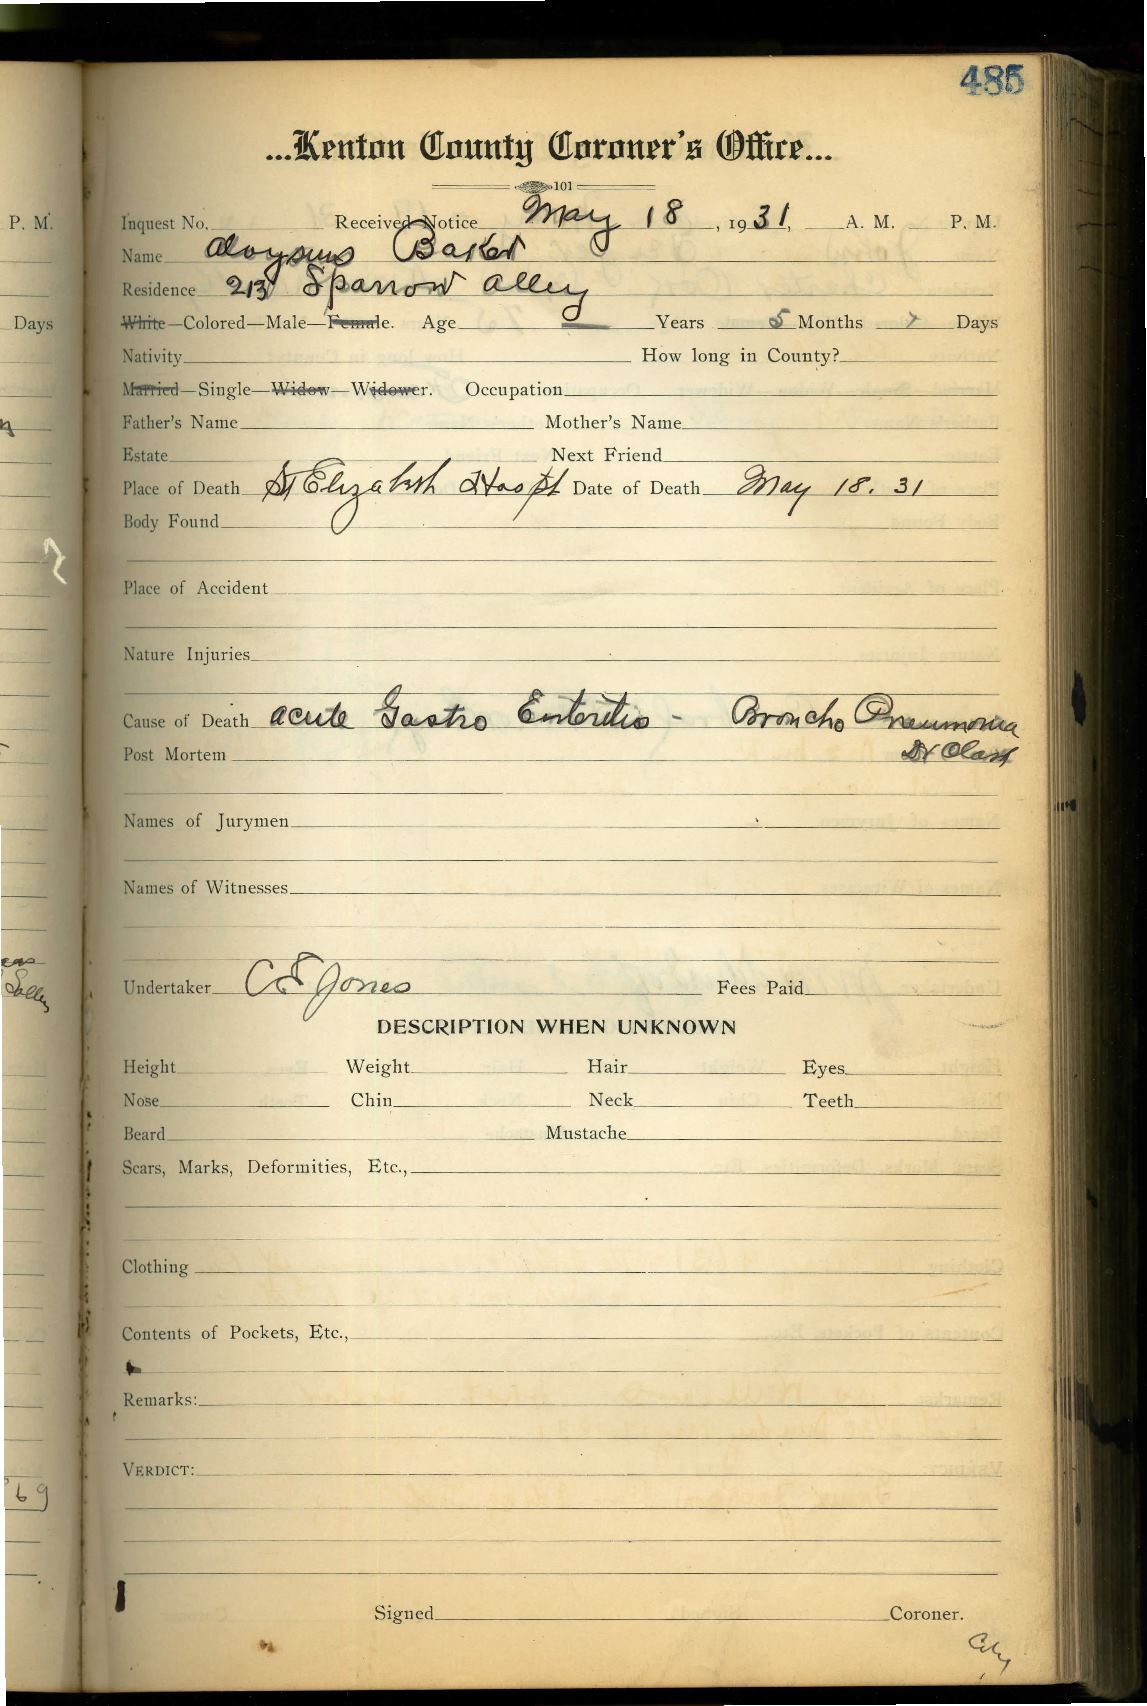 485
...Kenton County Coroner's Office...
101
P. M.
Inquest No. Received Notice May 18, 1931, A. M. P. M.
Name Aloysius Baker
Residence 213 Sparrow Alley
Days
White—Colored—Male—Female. Age — Years 5 Months 7 Days
Nativity How long in County?
Married—Single—Widow—Widower. Occupation
Father's Name Mother's Name
Estate Next Friend
Place of Death St Elizabeth Hospt Date of Death May 18. 31
Body Found
Place of Accident
Nature Injuries
Cause of Death acute Gastro Enteritis - Broncho Pneumonia
Post Mortem Dr
Names of Jurymen
Names of Witnesses
Undertaker C E Jones Fees Paid
DESCRIPTION WHEN UNKNOWN
Height Weight Hair Eyes
Nose Chin Neck Teeth
Beard Mustache
Scars, Marks, Deformities, Etc.,
Clothing
Contents of Pockets, Etc.,
Remarks:
VERDICT:
69
Signed Coroner.
City